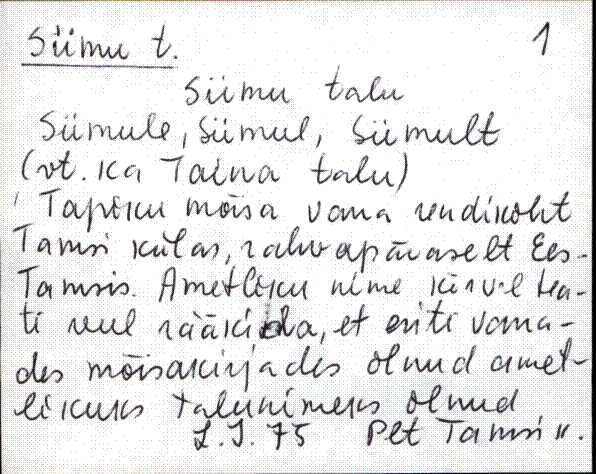 Siimu t. 1
Siimu talu
Siimule, Siimul, Siimult
(vt. ka Taina talu)
Tapiku mõisa vana rendikoht
Tamsi külas, rahvapäraselt Ees-
Tamsis. Ametliku nime kõrvel tea-
ti veel rääkida, et eriti vana-
des mõisakirjades olnud amet-
likuks talunimeks olnud
L.J. 75 Plt Tamsi k.